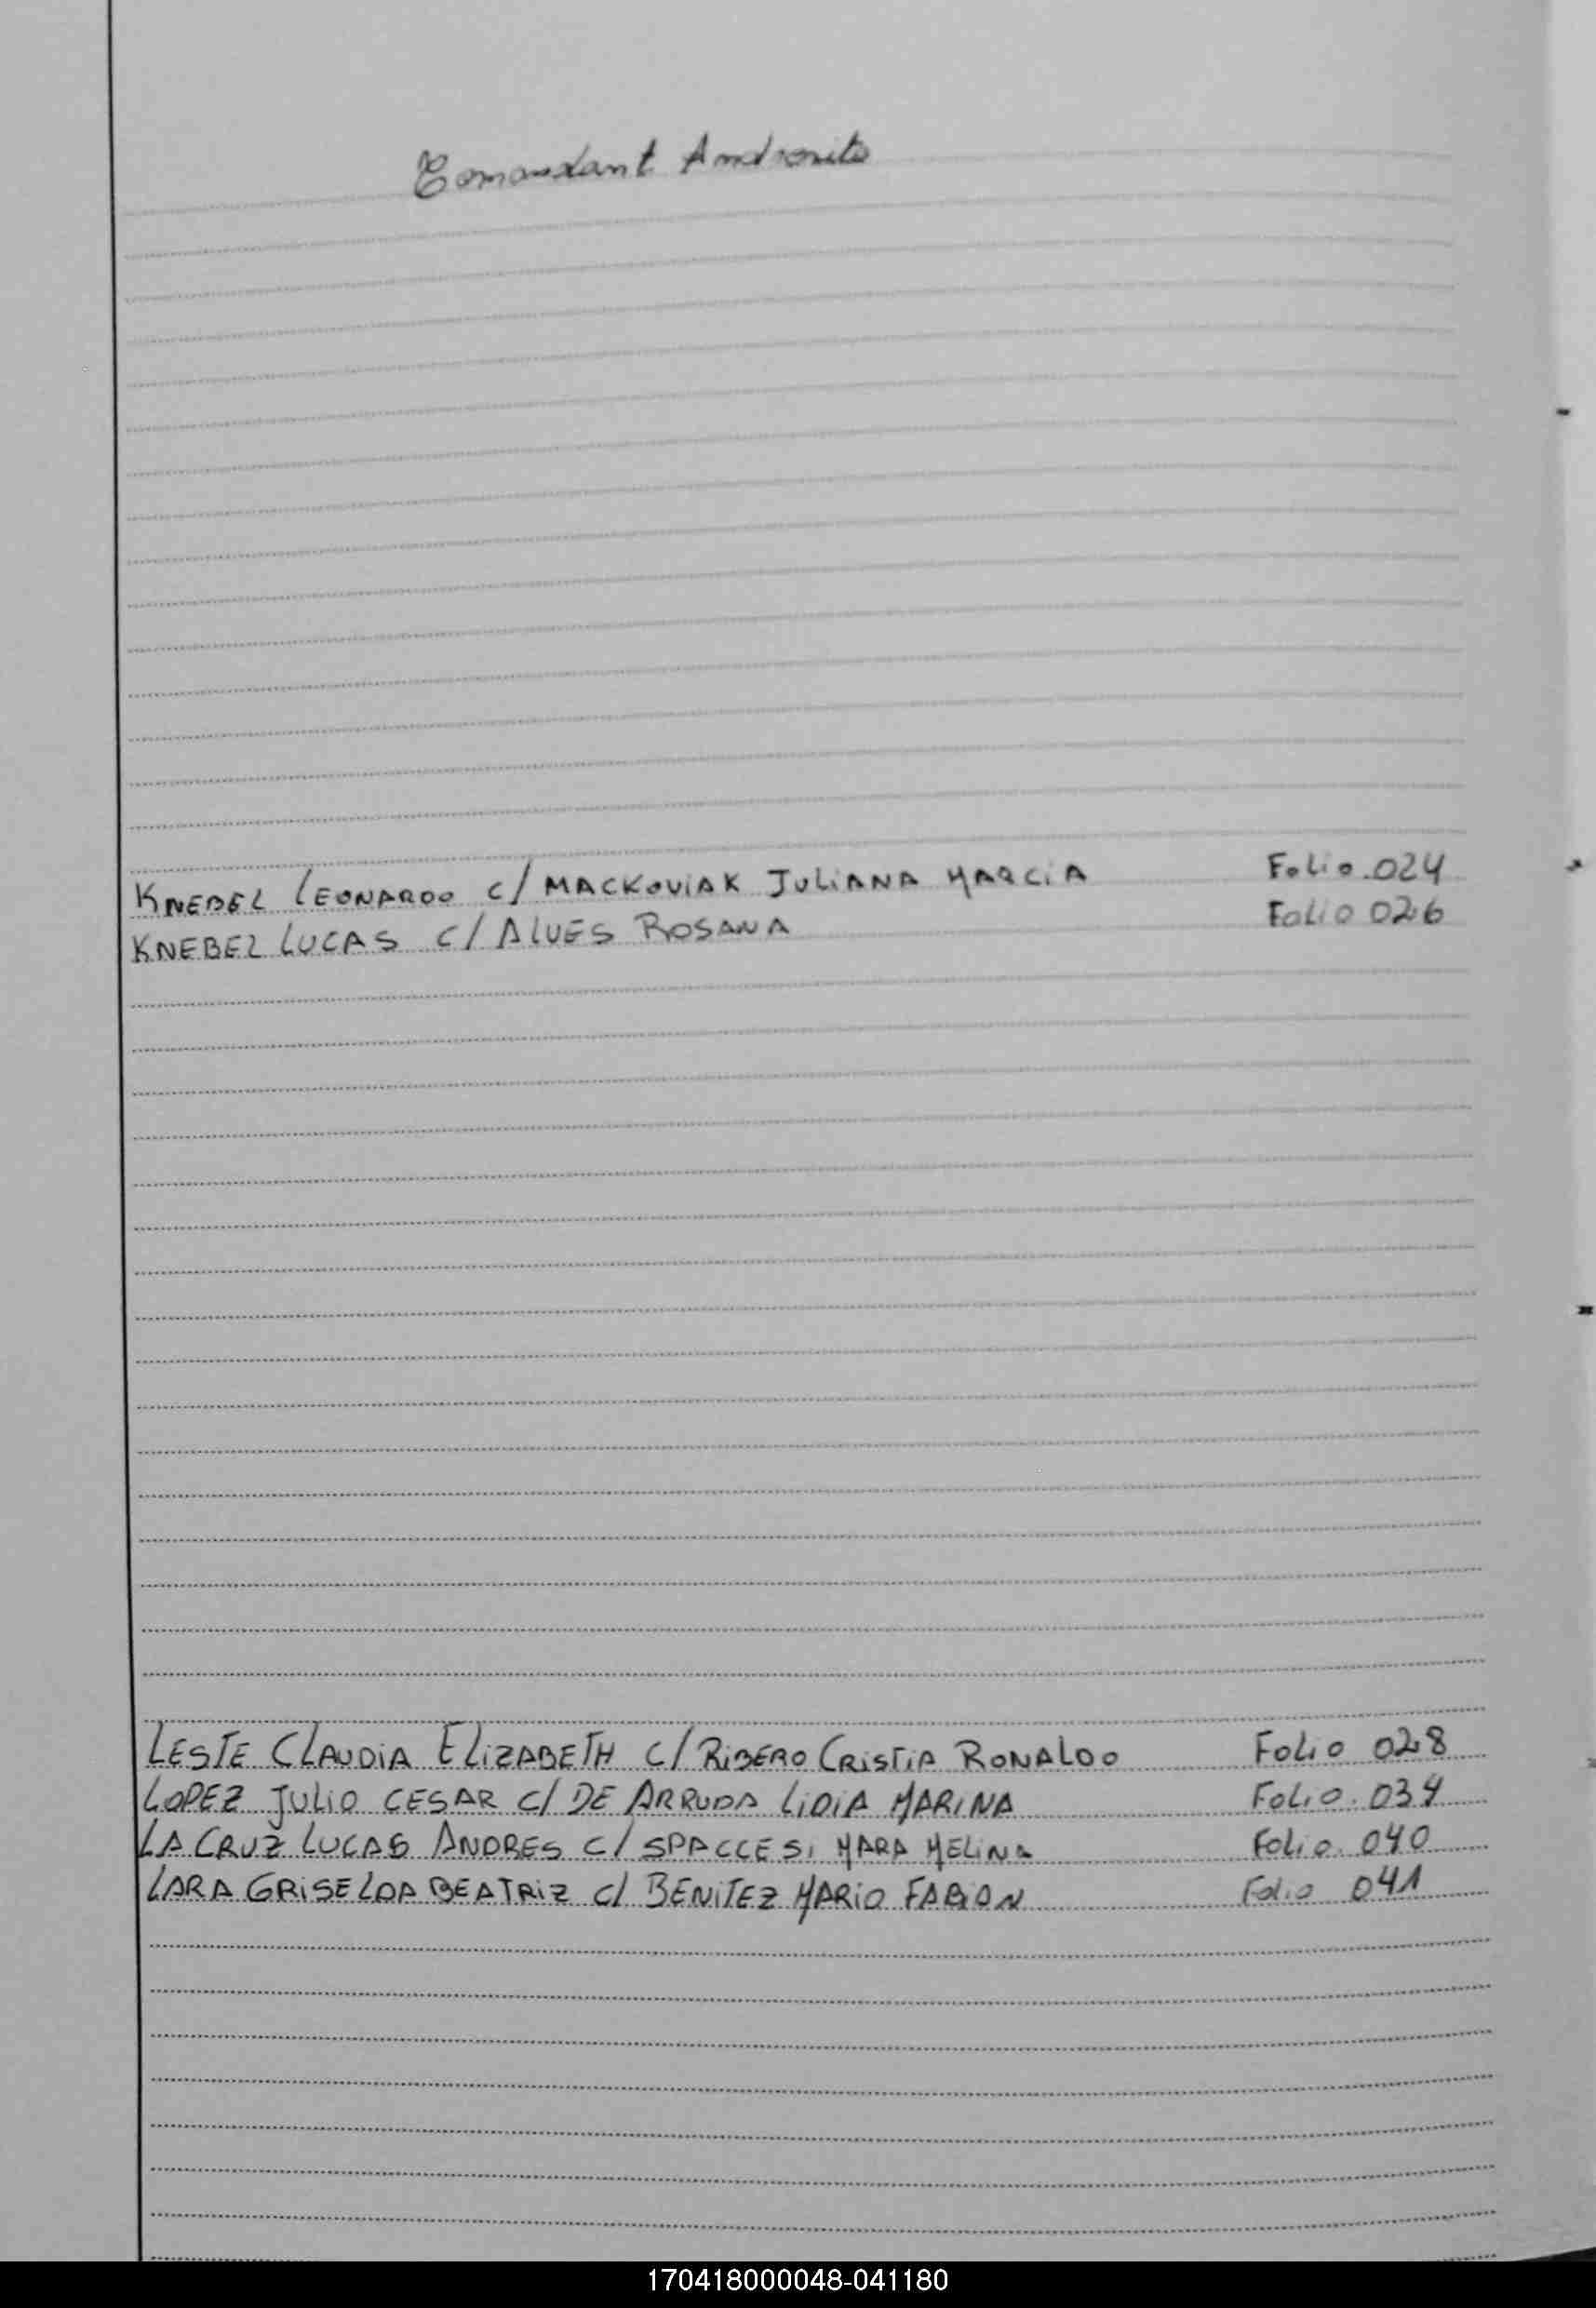 Comandant Andresito
KNEBEL LEONARDO C/ MACKOVIAK JULIANA MARCIA Folio 024
KNEBEL LUCAS C/ ALVES ROSANA Folio 026
LESTE CLAUDIA ELIZABETH C/ RIBERO CRISTIA RONALDO Folio 028
LOPEZ JULIO CESAR C/ DE ARRUDA LIDIA MARINA Folio 034
LA CRUZ LUCAS ANDRES C/ SPACCESI MARA MELINA Folio 040
LARA GRISELDA BEATRIZ C/ BENITEZ MARIO FABIAN Folio 041
170418000048-041180